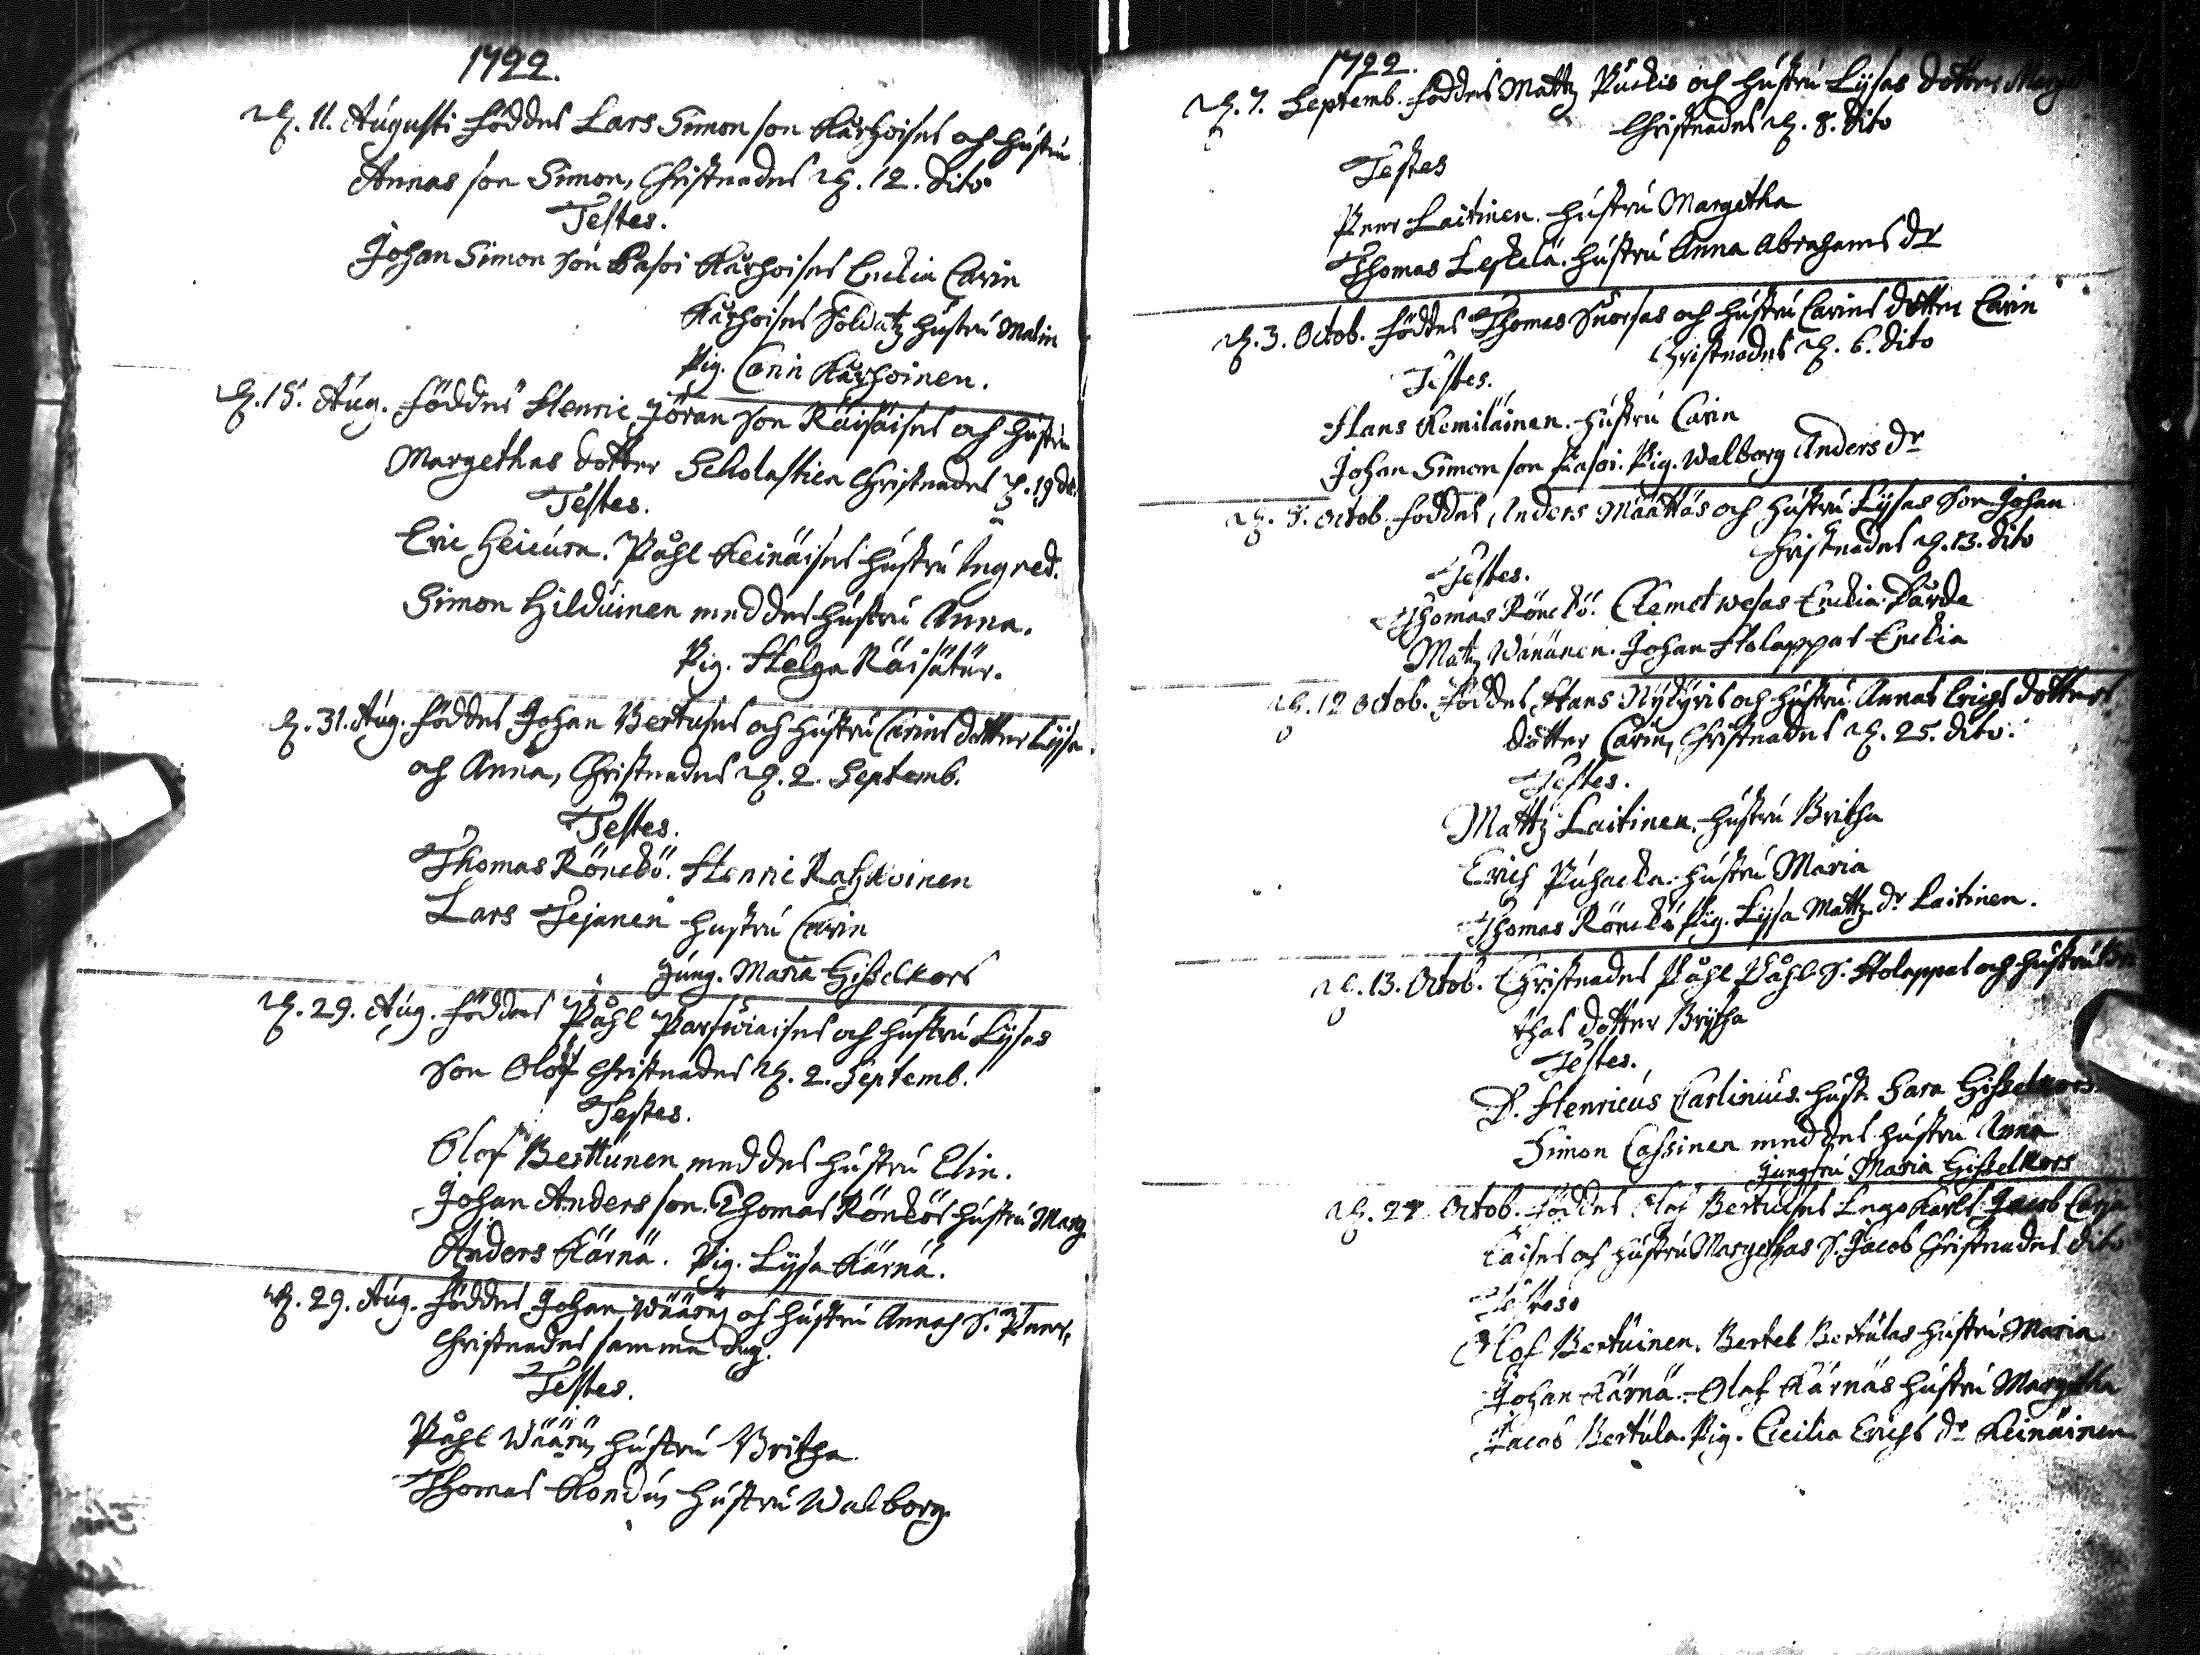 1722.
D. 11. Augusti föddes Lars Simon son Kärhoises och hustru
Annas son Simon, Christnades D. 12. dito
Testes.
Johan Simon son Pasoi Kärhoises Enckia Carin
Kärhoises Soldatz hustru Malin
Pig. Carin Kärhoinen.
D. 15. Aug. föddes Henric Jöran son Räisäises och hustru
Margethas dotter Scholastica Christnades D. 19 do.
Testes.
Eric Heicura. Påhl Keinäises hustru Ingred.
Simon Hilduinen med des hustru Anna.
Pig. Helga Räisätär.
D. 31. Aug. föddes Johan Bertuses och hustru Carins dotter Lysa
och Anna, Christnades D. 2. Septemb.
Testes.
Thomas Rönckö. Henric Rahkoinen
Lars Tejanen hustru Carin
Jung. Maria Gisselkors
D. 29. Aug. föddes Påhl Parswiaises och hustru Lysas
son Olof Christnades D. 2. Septemb.
Testes.
Olof Berttunen med des hustru Elin.
Johan Anders son. Thomas Rönckös hustru Marg
Anders Kärnä. Pig. Lysa Kärnä.
D. 29. Aug. föddes Johan Wäärys och hustru Annas S. Peer,
Christnades samma dag.
Testes.
Påhl Wäärys hustru Britha
Thomas Kondus hustru Walborg
1722.
D. 7. Septemb. föddes Mattz Puckis och hustru Lysas dotter
Christnades D. 8. dito
Testes
Peer Laitinen. hustru Margetha
Thomas Leskelä. hustru Anna Abrahams dr
D. 3. Octob. föddes Thomas Snorsas och hustru Carins dotter Carin
Christnades D. 6. dito
Testes.
Hans Kemiläinen. hustru Carin
Johan Simon son Pasoi. Pig. Walborg Anders dr
D. 8. Octob. föddes Anders Määttäs och hustru Lysas Son Johan
Christnades D. 13. dito
Testes.
Thomas Rönckö. Clemet wesas Enckia
Matz Wänänen. Johan Holappas Enckia
D. 12 Octob. föddes Hans Nykyris och hustru Annas Erichs dotters
dotter Carin, Christnades D. 25. dito.
Testes.
Mattz Laitinen. hustru Britha
Erich Puhacka. hustru Maria
Thomas Rönckö Pig. Lysa Mattz dr Laitinen.
D. 13. Octob. Christnades Påhl Påhl S. Holappas och hustru Bri
thas dotter Brytha
Testes.
D. Henricus Carlinius. hust. Sara Gisselkors.
Simon Cassinen med des hustru Anna
Jungfru Maria Gisselkors
D. 27 Octob. föddes Olof Bertulses Jacob
laises och hustru Margethas S. Jacob Christnades dito
Testes
Olof Bertuinen. Bertel Bertulas hustru Maria
Johan Kärnä. Olof Kärnäs hustru Margetha
Jacob Bertula. Pig. Cicilia Erichs dr Keinäinen